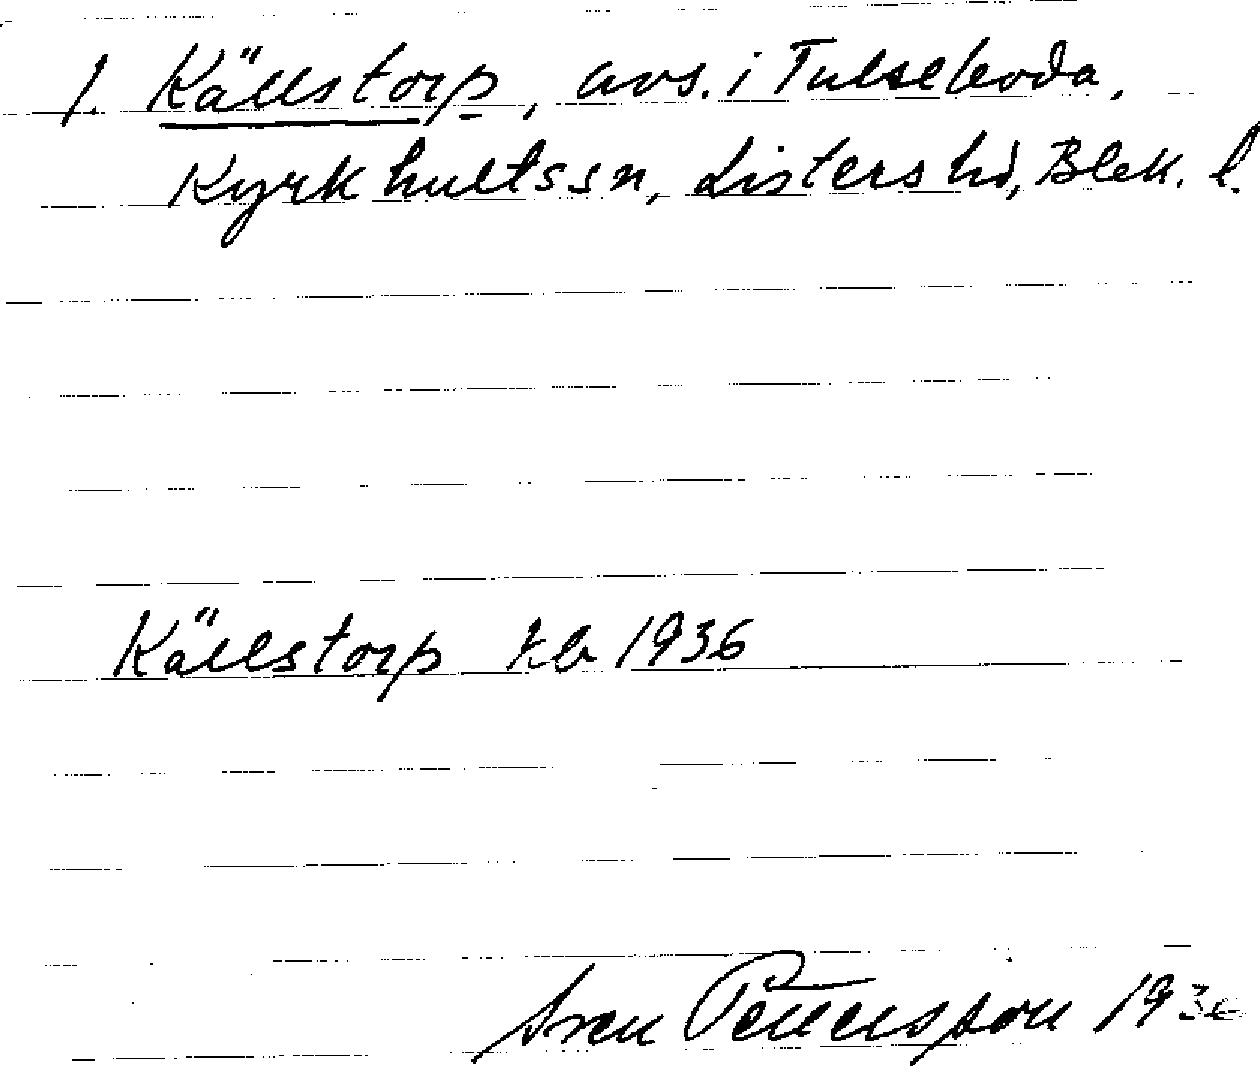 1. Källstorp, avs. i Tulseboda,
Kyrkhults sn, Listers hd, Blek. l.
Källstorp kb 1936
Sven Pettersson 1936